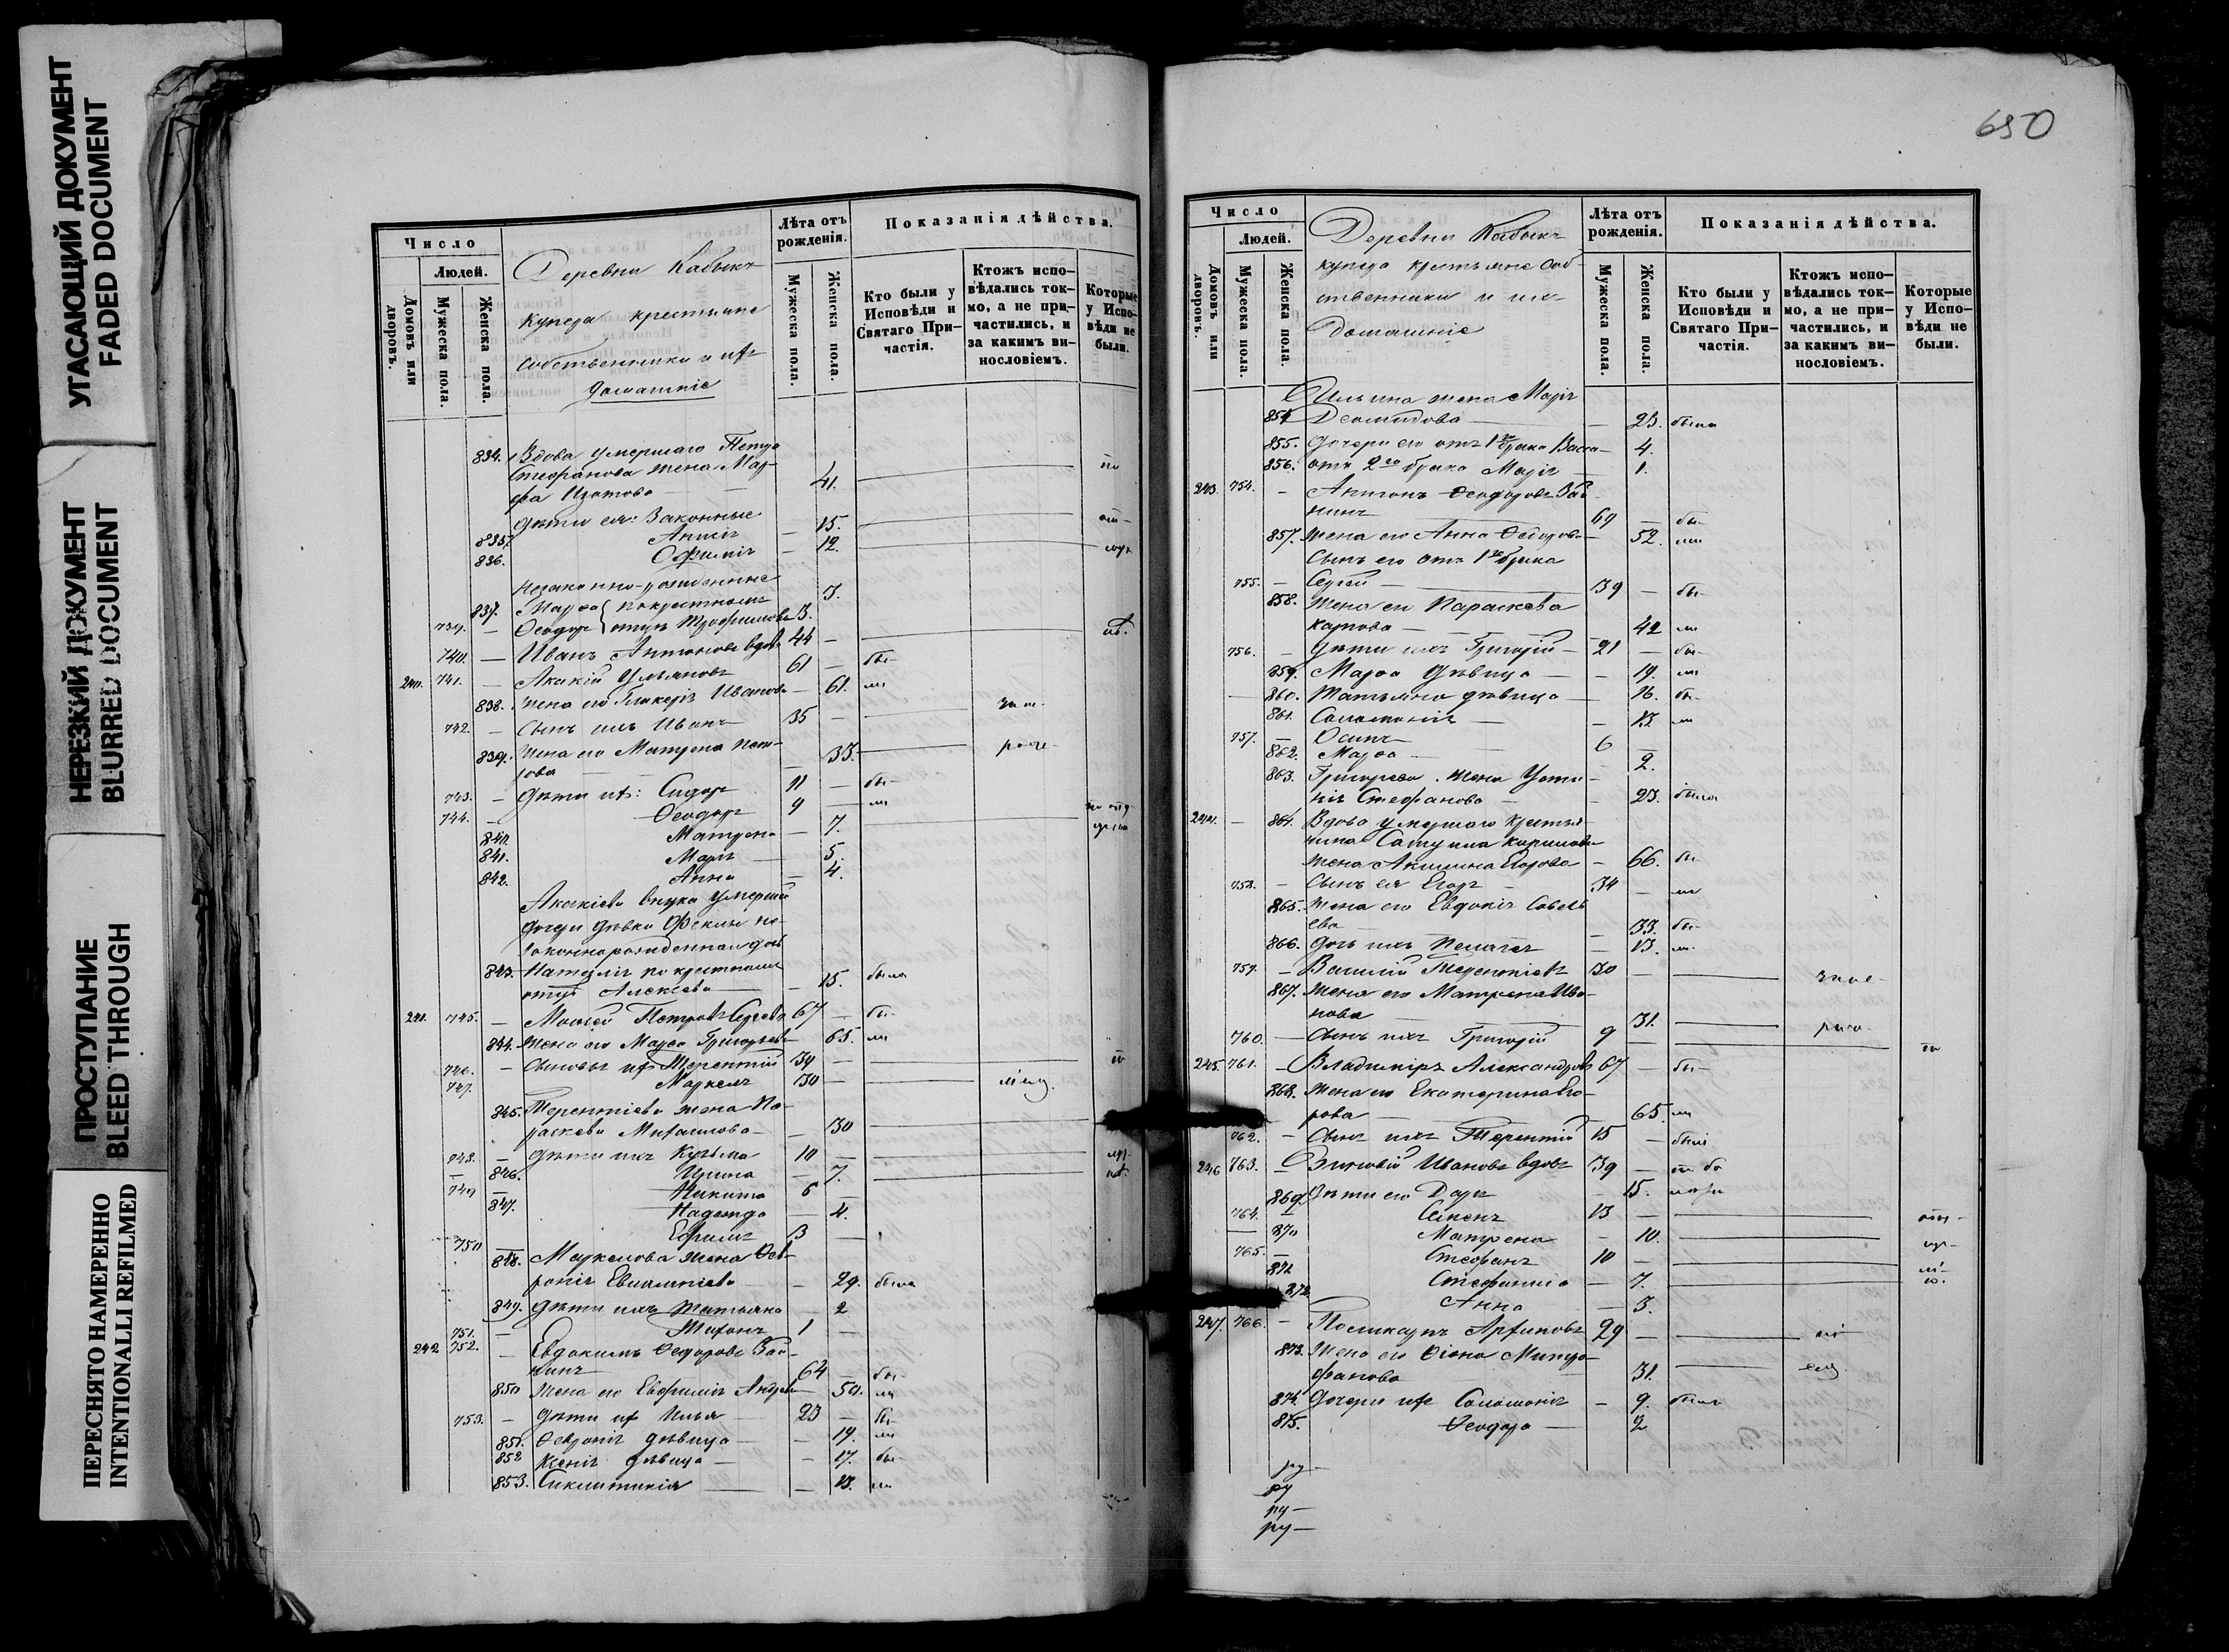 УГАСАЮЩИЙ ДОКУМЕНТ
FADED DOCUMENT
НЕРЕЗКИЙ ДОКУМЕНТ
BLURRED DOCUMENT
ПРОСТУПАНИЕ
BLEED THROUGH
ПЕРЕСНЯТО НАМЕРЕННО
INTENTIONALLI REFILMED
Число
Людей.
Домовъ или дворовъ.
Мужеска пола.
Женска пола.
Деревни
крестьяне
собственники и ихъ
домашніе
Лѣта отъ рожденія.
Мужеска пола.
Женска пола.
Показанія дѣйства.
Кто были у Исповѣди и Святаго Причастія.
Ктожъ исповѣдались токмо, а не причастились, и за какимъ винословіемъ.
Которые у Исповѣди не были.
834. Вдова умершаго Петра
Стефанова жена Мар-
фа Изотова — 41.
Дѣти ея: Законные
835. Анисія — 15.
836. Офимія — 12.
незаконно-рожденные
837. Марфа по крестному 3.
739. — Феодоръ отцу Трофимова 3.
740. — Иванъ Антоновъ вдовъ 44 —
240. 741. — Акакій Ульяновъ 61 — бы-
838. Жена его Гликерія Иванова — 61. ли
742. — Сынъ ихъ Иванъ 35 —
839. Жена его Матрена Пет-
рова — 33.
743. — Дѣти ихъ: Сидоръ 11 — бы-
744. — Феодоръ 9 — ли
840. Матрена — 7.
841. Марія — 5.
842. Анна — 4.
Акакіева внука умершей
дочери дѣвки Феклы не-
законнорожденная дочь
843. Наталія по крестному
отцу Алексѣева — 15. была
241. 745. — Моисей Петровъ Сергѣевъ 67 — бы-
844. Жена его Марфа Григорьева — 65. ли
746. — Сыновья ихъ Терентій 39 —
747. Маркелъ 30 —
845. Терентіева жена Па-
раскева Михаилова — 30
748. — Дѣти ихъ Кузьма 10 —
846. Ирина — 7.
749 — Никита 6
847. Надежда — 4.
750 — Ефимъ 3 —
848. Маркелова жена Фев-
ронія — 29. была
849. Дѣти ихъ Татьяна — 2
751. — 1 —
242 752. — Евдокимъ Феодоровъ Зай-
нинъ 64 бы-
850 Жена его Евфимія Андреева — 50. ли
753. — Дѣти ихъ Илья 23 — бы-
851. Февронія дѣвица — 19. ли
852 Ксенія дѣвица — 17. бы-
853. Синклитикія — 13. ли
650
Число
Людей.
Домовъ или дворовъ.
Мужеска пола.
Женска пола.
Деревни
крестьяне соб-
ственники и ихъ
домашніе
Лѣта отъ рожденія.
Мужеска пола.
Женска пола.
Показанія дѣйства.
Кто были у Исповѣди и Святаго Причастія.
Ктожъ исповѣдались токмо, а не причастились, и за какимъ винословіемъ.
Которые у Исповѣди не были.
Ильина жена Марія
854 Деомидова — 23. была
855. Дочери его отъ 1го брака Васса — 4.
856. отъ 2го брака Марія — 1.
243. 754. — Антонъ Феодоровъ Зай-
нинъ 69 — бы-
857. Жена его Анна Федорова — 52. ли
Сынъ его отъ 1го брака
755. — Сергей — 39 — бы-
858. Жена его Параскева
Карпова — 42 ли
756. — Дѣти ихъ Григорій — 21 — бы-
859. Марфа дѣвица — 19. ли
860. Татьяна дѣвица — 16. бы-
861. Соломонія — 13 ли
757. — Осипъ 6 —
862. Марфа — 2.
863. Григорьева жена Усти-
нія Стефанова — 23. была
244. — 864. Вдова умершаго крестья-
нина
жена Акилина Егорова — 66. бы-
758. — Сынъ ея Егоръ 34 — ли
865. Жена его Евдокія Савель-
ева — 33. бы-
866. Дочь ихъ Пелагея — 13. ли
759. — Василій Терентіевъ 30 —
867. Жена его Матрена Ива-
нова — 31.
760. — Сынъ ихъ Григорій 9
245. 761. — Владиміръ Александровъ 67 — бы-
868. Жена его Екатерина Его-
рова — 65. ли
762. — Сынъ ихъ Терентій 15 — былъ
246 763. — Зиновій Ивановъ вдовъ 39 —
869. Дѣти его Дарія — 15.
764. — Семенъ 13 —
870 Матрена — 10.
765. — Стефанъ 10 —
871 Стефанида — 7.
872. Анна — 3.
247. 766. — Поликарпъ Архиповъ 29 —
873. Жена его Фіона Митро-
фанова 31.
874. Дочери ихъ Соломонія — 9. была
875. Феодора — 2